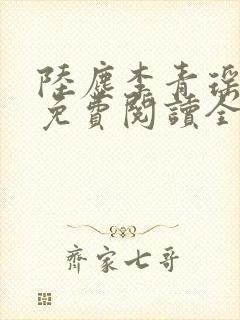 陸塵李青瑤
免費閱讀全
齊家七哥